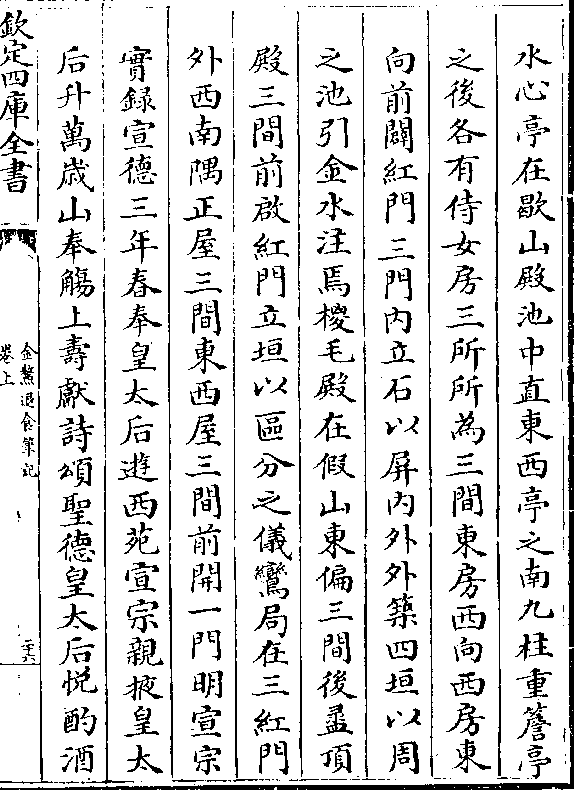 水心亭在歇山殿池中直東西亭之南九柱重簷亭
之後各有侍女房三所所為三間東房西向西房東
向前闢紅門三門內立石以屏內外外築四垣以周
之池引金水注焉椶毛殿在假山東偏三間後盝頂
殿三間前啟紅門立垣以區分之儀鸞局在三紅門
外西南隅正屋三間東西屋三間前開一門明宣宗
實録宣德三年春奉皇太后遊西苑宣宗親掖皇太
后升萬歳山奉觴上壽獻詩頌聖德皇太后悦酌酒
欽定四庫全書
金鰲退食筆記
卷上
二十六